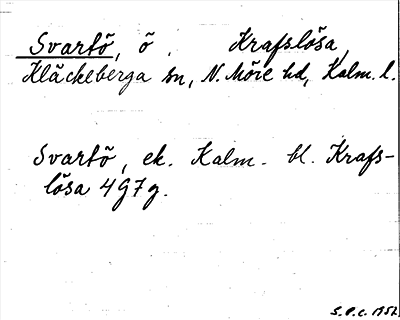 Svartö, ö. Krafslösa,
Kläckeberga sn, N. Möre hd, Kalm. l.
Svartö, ek. Kalm. bl. Krafs-
lösa 4 g7g.
S.P.C. 1952